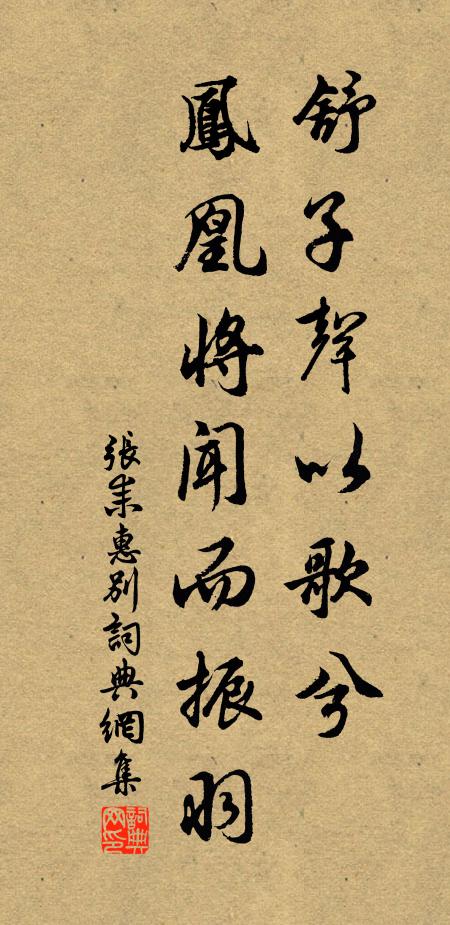 舒子聲以歌兮
鳳凰將聞而振羽
張耒惠別詞典網集
詞典
网印